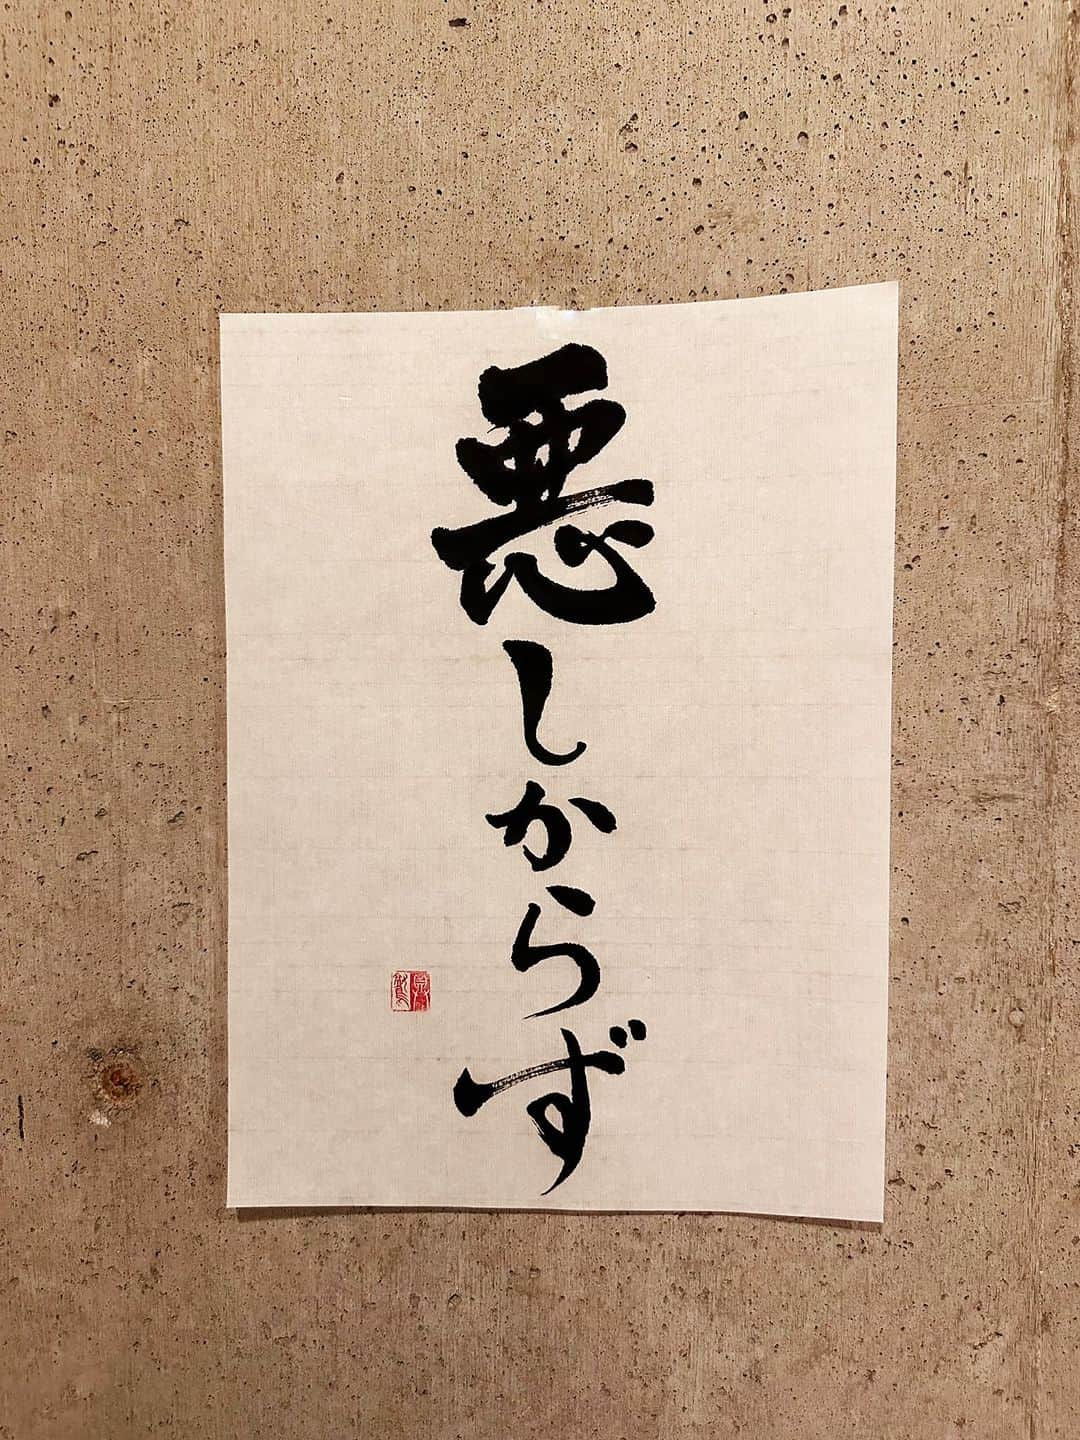 悪しからず